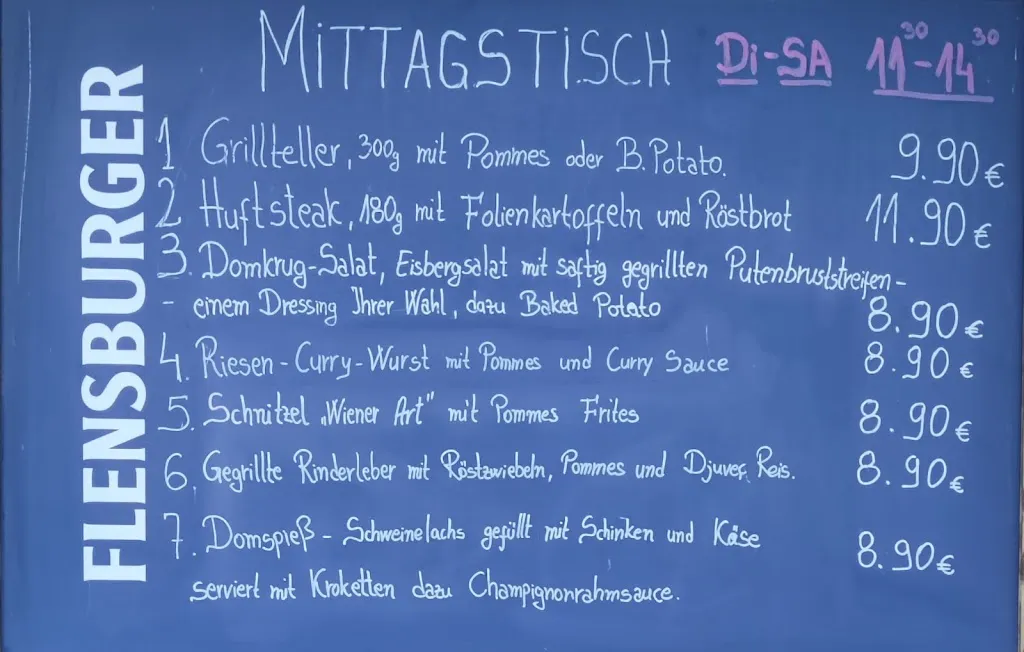 MiTTAGSTiSCH Di-SA 11³⁰-14³⁰
FLENSBURGER
1 Grillteller, 300g mit Pommes oder B. Potato. 9.90€
2 Huftsteak, 180g mit Folienkartoffeln und Röstbrot 11.90€
3. Domkrug-Salat, Eisbergsalat mit saftig gegrillten Putenbruststreifen-
- einem Dressing Ihrer Wahl, dazu Baked Potato 8.90€
4. Riesen-Curry-Wurst mit Pommes und Curry Sauce 8.90€
5. Schnitzel „Wiener Art" mit Pommes Frites 8.90€
6. Gegrillte Rinderleber mit Röstzwiebeln, Pommes und Djuvec Reis. 8.90€
7. Domspieß - Schweinelachs gefüllt mit Schinken und Käse 8.90€
serviert mit Kroketten dazu Champignonrahmsauce.